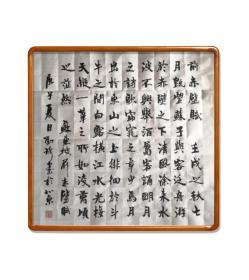 前赤壁賦 壬戌之秋七
月既望蘇子與客泛舟游
於赤壁之下清風徐來水
波不興舉酒屬客誦明月
之詩歌窈窕之章少焉月
出於東山之上徘徊於斗
牛之間白露橫江水光接
天縱一葦之所如凌萬頃
之茫然 蘇東坡前赤壁賦
夏日